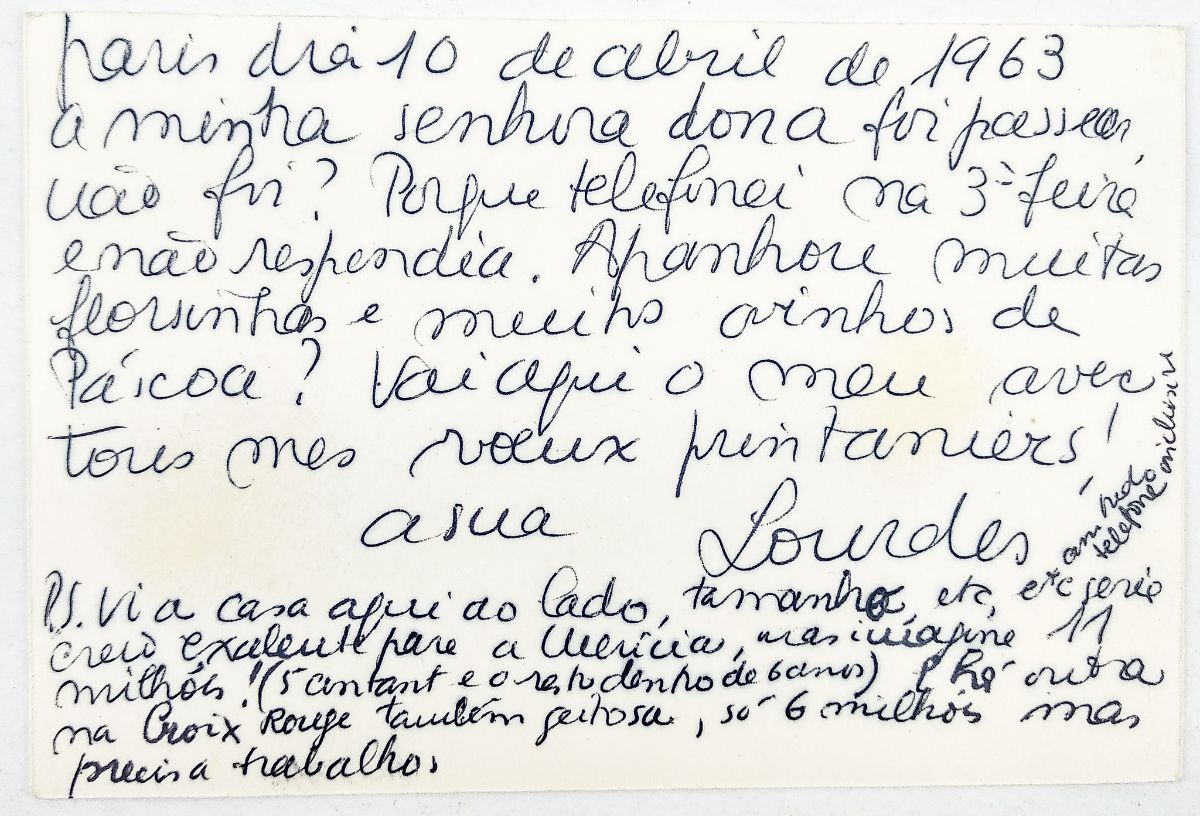 Paris dia 10 de abril de 1963
a minha senhora dona foi passear,
não foi? Porque telefonei na 3ª feira
e não respondia. Apanhou muitas
florsinhas e muitos ovinhos de
Páscoa? Vai aqui o meu avec
tous mes vœux printaniers!
a sua Lourdes
P.S. Vi a casa aqui ao lado, tamanho, etc, etc seria
creio exalente para a Merícia, mas imagine 11
milhões! (5 comtant e o resto dentro de 6 anos) Há outra
na Croix Rouge também geitosa, só 6 milhões mas
precisa trabalhos
telefone inclusive